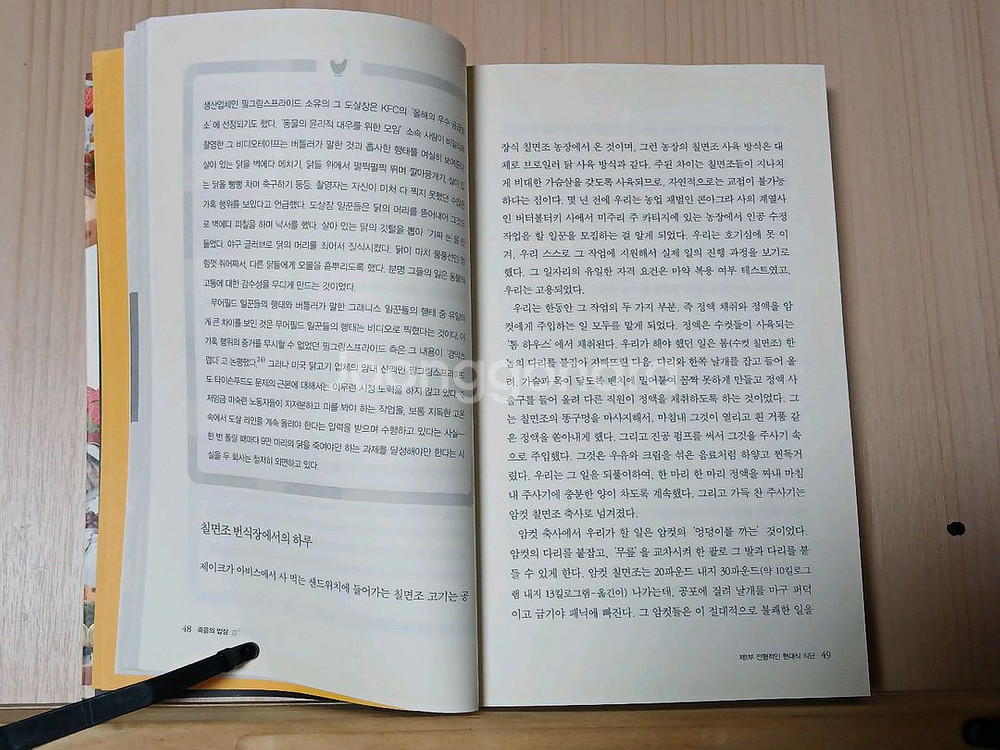 생산업체인 필그림스프라이드 소유의 그 도살장은 KFC의 '올해의 우수 공급업
소'에 선정되기도 했다. '동물의 윤리적 대우를 위한 모임' 소속 사람이 비밀리에
촬영한 그 비디오테이프는 버틀러가 말한 것과 흡사한 행태를 여실히 보여준다.
살아 있는 닭을 벽에다 메치기, 닭들 위에서 펄쩍펄쩍 뛰며 깔아뭉개기, 살아 있
는 닭을 뻥뻥 차며 축구하기 등등. 촬영자는 자신이 미처 다 찍지 못했던 수많은
가혹 행위를 보았다고 언급했다. 도살장 일꾼들은 닭의 머리를 뜯어내어 그것으
로 벽에다 피칠을 하며 낙서를 했다. 살아 있는 닭의 깃털을 뽑아 '가짜 눈'을 만
들었다. 야구 글러브로 닭의 머리를 죄어서 질식시켰다. 닭이 마치 물풍선인 양
힘껏 쥐어짜서, 다른 닭들에게 오물을 흩뿌리도록 했다. 분명 그들의 일은 동물의
고통에 대한 감수성을 무디게 만드는 것이었다.
무어필드 일꾼들의 행태와 버틀러가 말한 그래니스 일꾼들의 행태 중 유일하
게 큰 차이를 보인 것은 무어필드 일꾼들의 행태는 비디오로 찍혔다는 것이다. 이
가혹 행위의 증거를 무시할 수 없었던 필그림스프라이드 측은 그 내용이 '경악스
럽다'고 논평했다.24) 그러나 미국 닭고기 업체의 양대 산맥인 필그림스프라이드
도 타이슨푸드도 문제의 근본에 대해서는 아무런 시정 노력을 하지 않고 있다.
저임금 미숙련 노동자들이 지저분하고 피를 봐야 하는 작업을, 보통 지독한 고온
속에서 도살 라인을 계속 돌려야 한다는 압력을 받으며 수행하고 있다는 사실—
한 번 돌릴 때마다 9만 마리의 닭을 죽여야만 하는 과제를 달성해야만 한다는 사
실을 두 회사는 철저히 외면하고 있다.
칠면조 번식장에서의 하루
제이크가 아비스에서 사 먹는 샌드위치에 들어가는 칠면조 고기는 공
48 죽음의 밥상
장식 칠면조 농장에서 온 것이며, 그런 농장의 칠면조 사육 방식은 대
체로 브로일러 닭 사육 방식과 같다. 주된 차이는 칠면조들이 지나치
게 비대한 가슴살을 갖도록 사육되므로, 자연적으로는 교접이 불가능
하다는 점이다. 몇 년 전에 우리는 농업 재벌인 콘아그라 사의 계열사
인 버터볼터키 사에서 미주리 주 카티지에 있는 농장에서 인공 수정
작업을 할 일꾼을 모집하는 걸 알게 되었다. 우리는 호기심에 못 이
겨, 우리 스스로 그 작업에 지원해서 실제 일의 진행 과정을 보기로
했다. 그 일자리의 유일한 자격 요건은 마약 복용 여부 테스트였고,
우리는 고용되었다.
우리는 한동안 그 작업의 두 가지 부분, 즉 정액 채취와 정액을 암
컷에게 주입하는 일 모두를 맡게 되었다. 정액은 수컷들이 사육되는
'톰 하우스'에서 채취된다. 우리가 해야 했던 일은 톰(수컷 칠면조) 한
놈의 다리를 붙잡아 자빠뜨린 다음, 다리와 한쪽 날개를 잡고 들어 올
려, 가슴과 목이 닿도록 벤치에 밀어붙여 꼼짝 못하게 만들고 정액 사
출구를 들어 올려 다른 직원이 정액을 채취하도록 하는 것이었다. 그
는 칠면조의 똥구멍을 마사지해서, 마침내 그것이 열리고 흰 거품 같
은 정액을 쏟아내게 했다. 그리고 진공 펌프를 써서 그것을 주사기 속
으로 주입했다. 그것은 우유와 크림을 섞은 음료처럼 하얗고 찐득거
렸다. 우리는 그 일을 되풀이하여, 한 마리 한 마리 정액을 짜내 마침
내 주사기에 충분한 양이 차도록 계속했다. 그리고 가득 찬 주사기는
암컷 칠면조 축사로 넘겨졌다.
암컷 축사에서 우리가 할 일은 암컷의 '엉덩이를 까는' 것이었다.
암컷의 다리를 붙잡고, '무릎'을 교차시켜 한 팔로 그 발과 다리를 붙
들 수 있게 한다. 암컷 칠면조는 20파운드 내지 30파운드(약 10킬로그
램 내지 13킬로그램-옮긴이) 나가는데, 공포에 질려 날개를 마구 퍼덕
이고 급기야 패닉에 빠진다. 그 암컷들은 이 절대적으로 불쾌한 일을
제1부 전형적인 현대식 식단 49